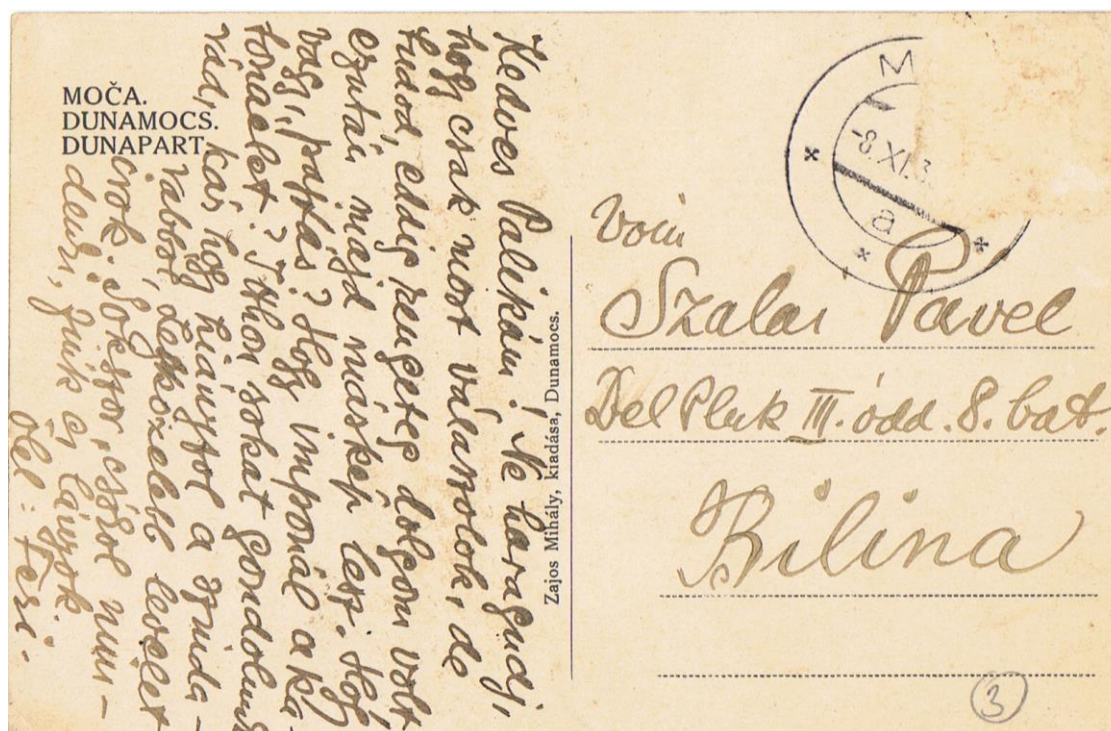 MOČA.
DUNAMOCS.
DUNAPART.
Kedves Palikám! Ne haragudj,
hogy csak most válaszolok, de
tudod, eddig rengeteg dolgom volt
ezután majd máskép lesz. Hogy
vagy, pajtás? Hogy imponál a ka-
tonaélet? Itthon sokat gondolunk
rád, kár, hogy hiányzol a
Legközelebb levelet
irok. Sokszor csókol min-
denki, fiúk és lányok
Ölel: Feri.
Zajos Mihály, kiadása, Dunamocs.
M
-8.XI.3
a
Voin
Szalai Pavel
Del Pluk III. odd. 8. bat.
Bilina
3